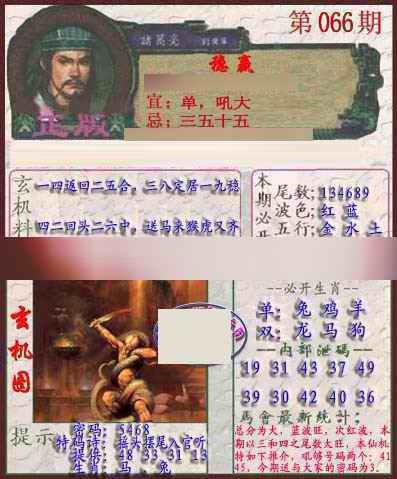 第066期
諸葛亮
稳赢
宜：单，吼大
忌：三五十五
正版
玄机料
一四返回二五合，三八定居一九稳
四二回头二六中，送马来猴虎又齐
本期必开
尾数：134689
波色：红 蓝
五行：金 水 土
玄机图
--必开生肖--
单：兔 鸡 羊
双：龙 马 狗
--内部泄码--
19 31 43 37 49
39 30 42 40 36
馬會最新統計：
总分为大，蓝波旺，次红波，本
期以三和四之尾数大旺，本仙机
特如下推介，吼够号码两个：41
45，今期送与大家的密码为3．
提示
密码：5468
特码诗：摇头摆尾入官听
提得：48 33 31 13
生肖：马、兔